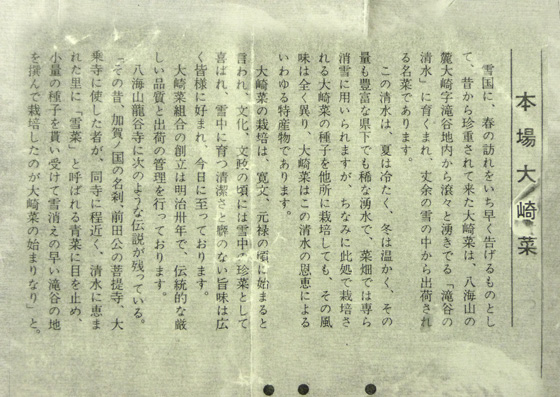 本場 大崎菜
雪国に、春の訪れをいち早く告げるものとし
て、昔から珍重されて来た大崎菜は、八海山の
麓大崎字滝谷地内から滾々と湧きでる「滝谷の
清水」に育くまれ、丈余の雪の中から出荷され
る名菜であります。
この清水は、夏は冷たく、冬は温かく、その
量も豊富な県下でも稀な湧水で、菜畑では専ら
消雪に用いられますが、ちなみに此処で栽培さ
れる大崎菜の種子を他所に栽培しても、その風
味は全く異り、大崎菜はこの清水の恩恵による
いわゆる特産物であります。
大崎菜の栽培は、寛文、元禄の頃に始まると
言われ、文化、文政の頃には雪中の珍菜として
喜ばれ、雪中に育つ清潔さと癖のない旨味は広
く皆様に好まれ、今日に至っております。
大崎菜組合の創立は明治卅年で、伝統的な厳
しい品質と出荷の管理を行っております。
八海山龍谷寺に次のような伝説が残っている。
「その昔、加賀ノ国の名刹、前田公の菩提寺、大
乗寺に使した者が、同寺に程近く、清水に恵ま
れた里に「雪菜」と呼ばれる青菜に目を止め、
小量の種子を貰い受けて雪消えの早い滝谷の地
を撰んで栽培したのが大崎菜の始まりなり」と。